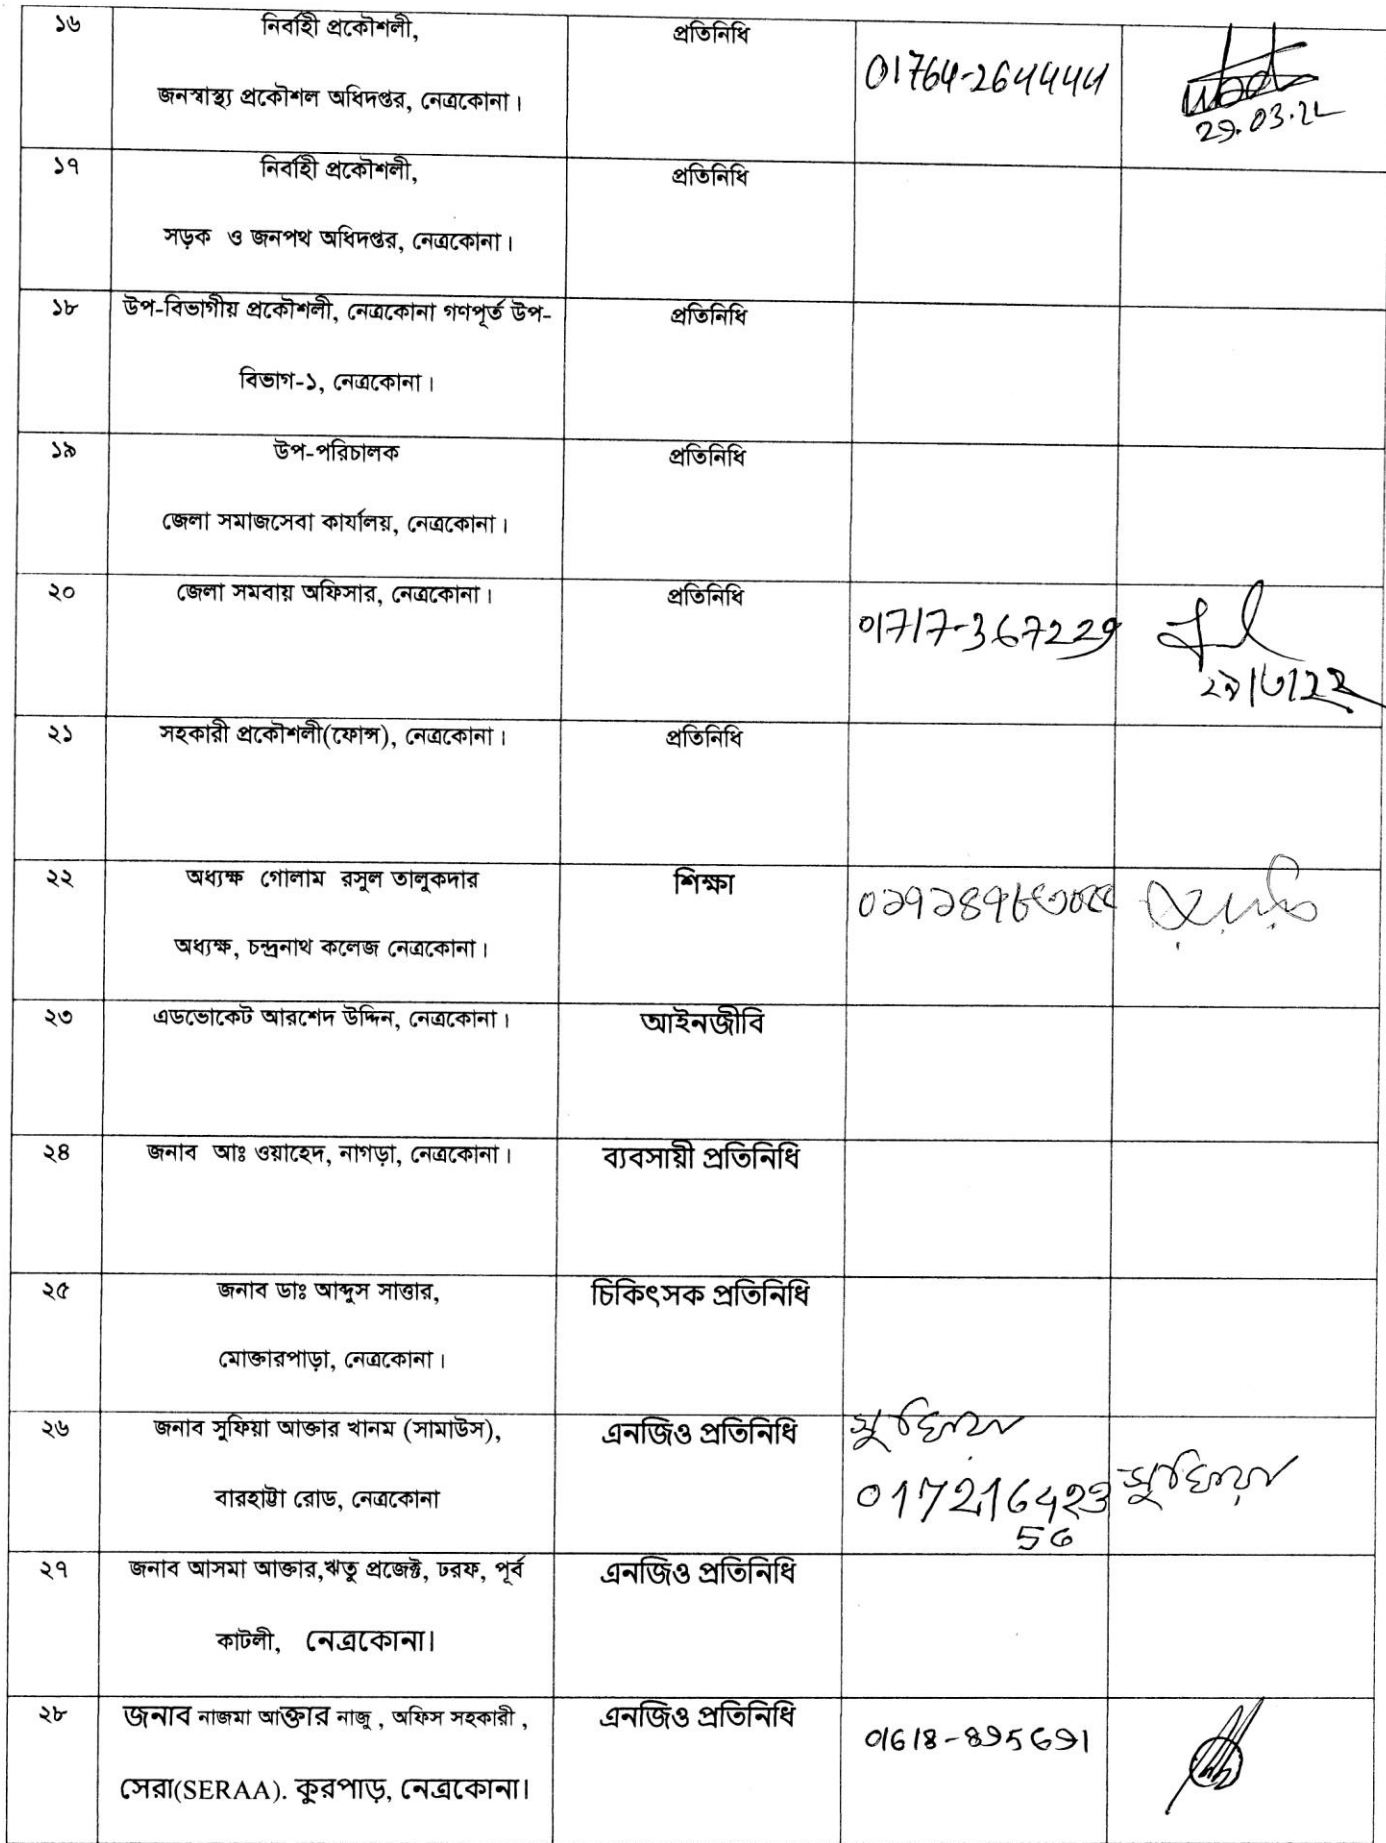 ১৬
নির্বাহী প্রকৌশলী,
জনস্বাস্থ্য প্রকৌশল অধিদপ্তর, নেত্রকোনা।
প্রতিনিধি
01764-264444
29.03.22
১৭
নির্বাহী প্রকৌশলী,
সড়ক ও জনপথ অধিদপ্তর, নেত্রকোনা।
প্রতিনিধি
১৮
উপ-বিভাগীয় প্রকৌশলী, নেত্রকোনা গণপূর্ত উপ-
বিভাগ-১, নেত্রকোনা।
প্রতিনিধি
১৯
উপ-পরিচালক
জেলা সমাজসেবা কার্যালয়, নেত্রকোনা।
প্রতিনিধি
২০
জেলা সমবায় অফিসার, নেত্রকোনা।
প্রতিনিধি
01717-367229
২৯/৩/২২
২১
সহকারী প্রকৌশলী(ফোন্স), নেত্রকোনা।
প্রতিনিধি
২২
অধ্যক্ষ গোলাম রসুল তালুকদার
অধ্যক্ষ, চন্দ্রনাথ কলেজ নেত্রকোনা।
শিক্ষা
২৩
এডভোকেট আরশেদ উদ্দিন, নেত্রকোনা।
আইনজীবি
২৪
জনাব আঃ ওয়াহেদ, নাগড়া, নেত্রকোনা।
ব্যবসায়ী প্রতিনিধি
২৫
জনাব ডাঃ আব্দুস সাত্তার,
মোক্তারপাড়া, নেত্রকোনা।
চিকিৎসক প্রতিনিধি
২৬
জনাব সুফিয়া আক্তার খানম (সামাউস),
বারহাট্টা রোড, নেত্রকোনা
এনজিও প্রতিনিধি
সুফিয়া
017216423
56
সুফিয়া
২৭
জনাব আসমা আক্তার,ঋতু প্রজেক্ট, ঢরফ, পূর্ব
কাটলী, নেত্রকোনা।
এনজিও প্রতিনিধি
২৮
জনাব নাজমা আক্তার নাজু , অফিস সহকারী ,
সেরা(SERAA). কুরপাড়, নেত্রকোনা।
এনজিও প্রতিনিধি
01618-895691